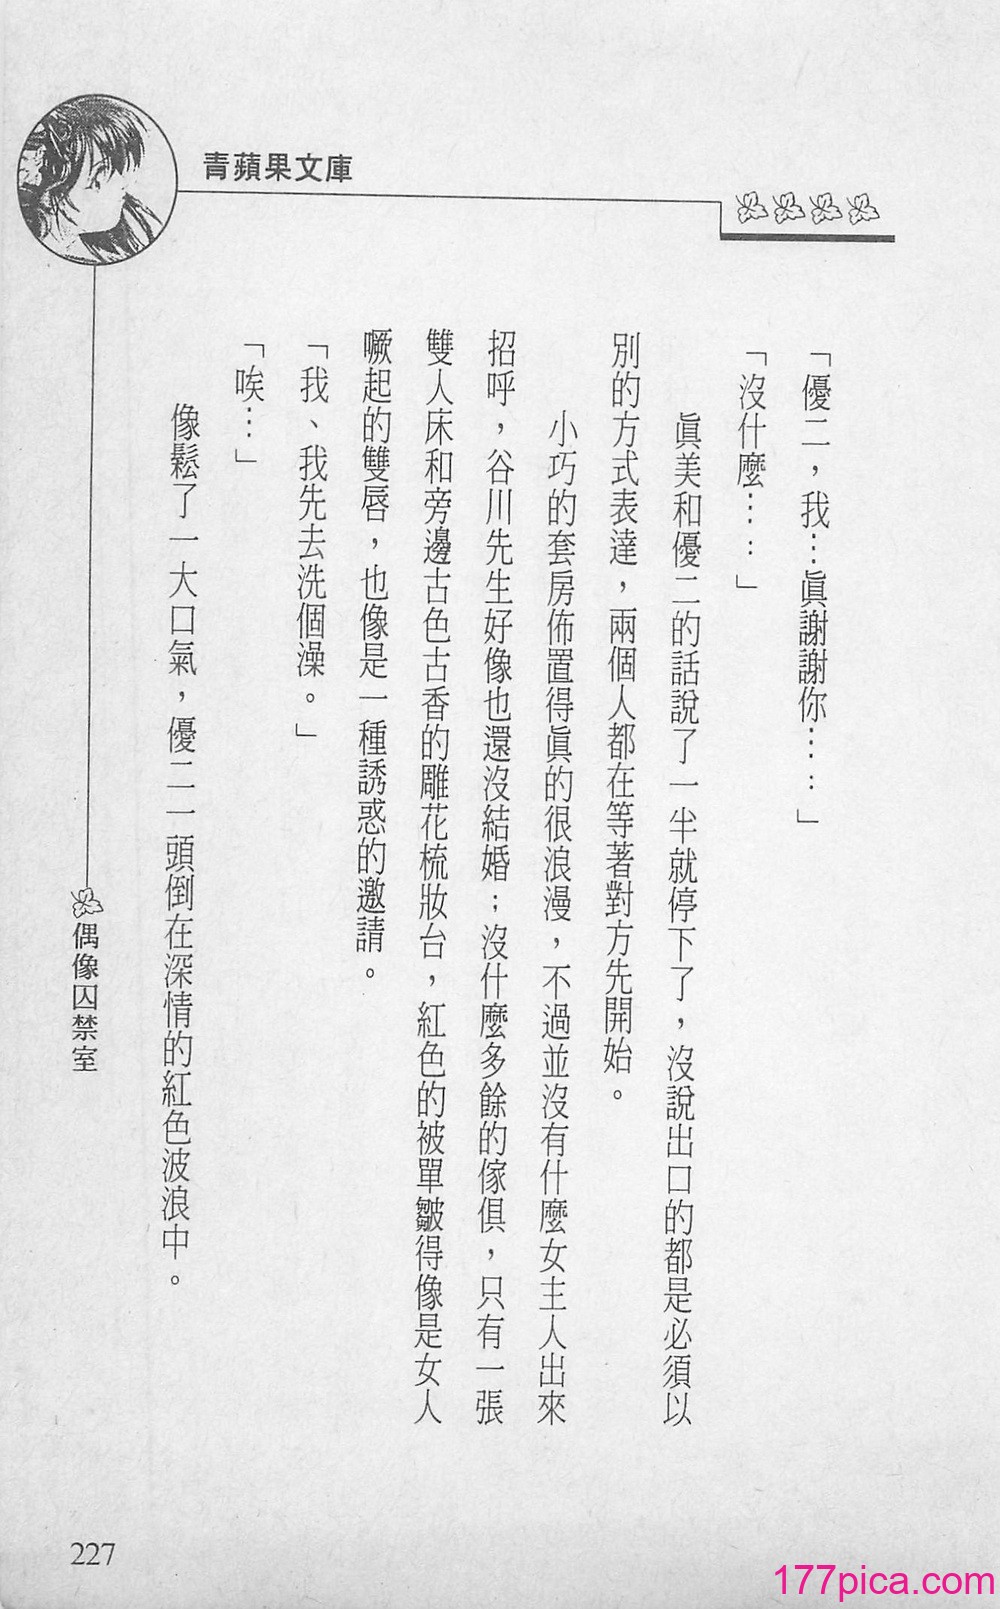 青蘋果文庫
「優二，我…眞謝謝你……」
「沒什麼……」
眞美和優二的話說了一半就停下了，沒說出口的都是必須以
別的方式表達，兩個人都在等著對方先開始。
小巧的套房佈置得眞的很浪漫，不過並沒有什麼女主人出來
招呼，谷川先生好像也還沒結婚；沒什麼多餘的傢俱，只有一張
雙人床和旁邊古色古香的雕花梳妝台，紅色的被單皺得像是女人
噘起的雙唇，也像是一種誘惑的邀請。
「我、我先去洗個澡。」
「唉…」
像鬆了一大口氣，優二一頭倒在深情的紅色波浪中。
偶像囚禁室
227
177pica.com